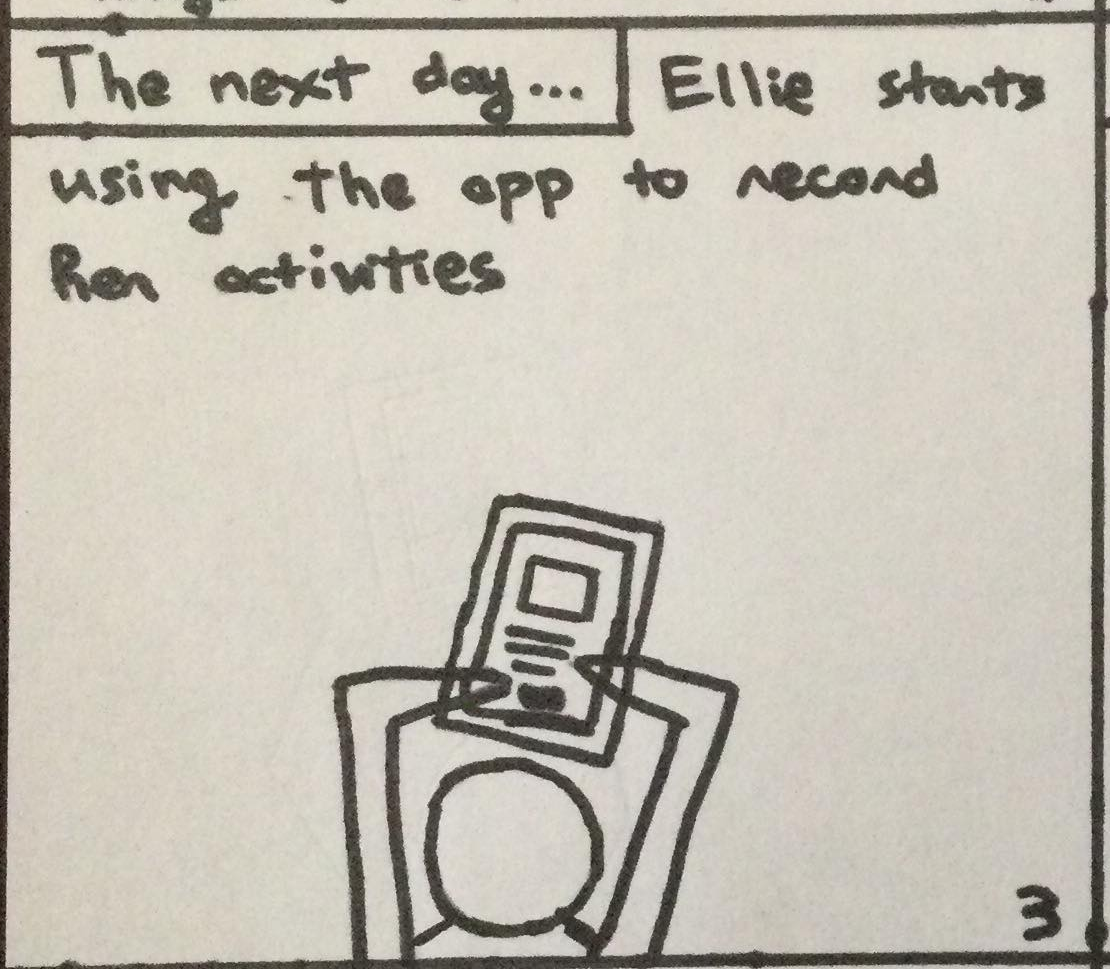 The next day...
Ellie starts
using the app to record
her activities
3